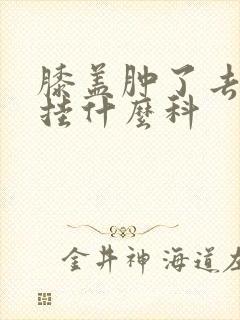 膝盖肿了去
挂什麼科
金井神 海道左